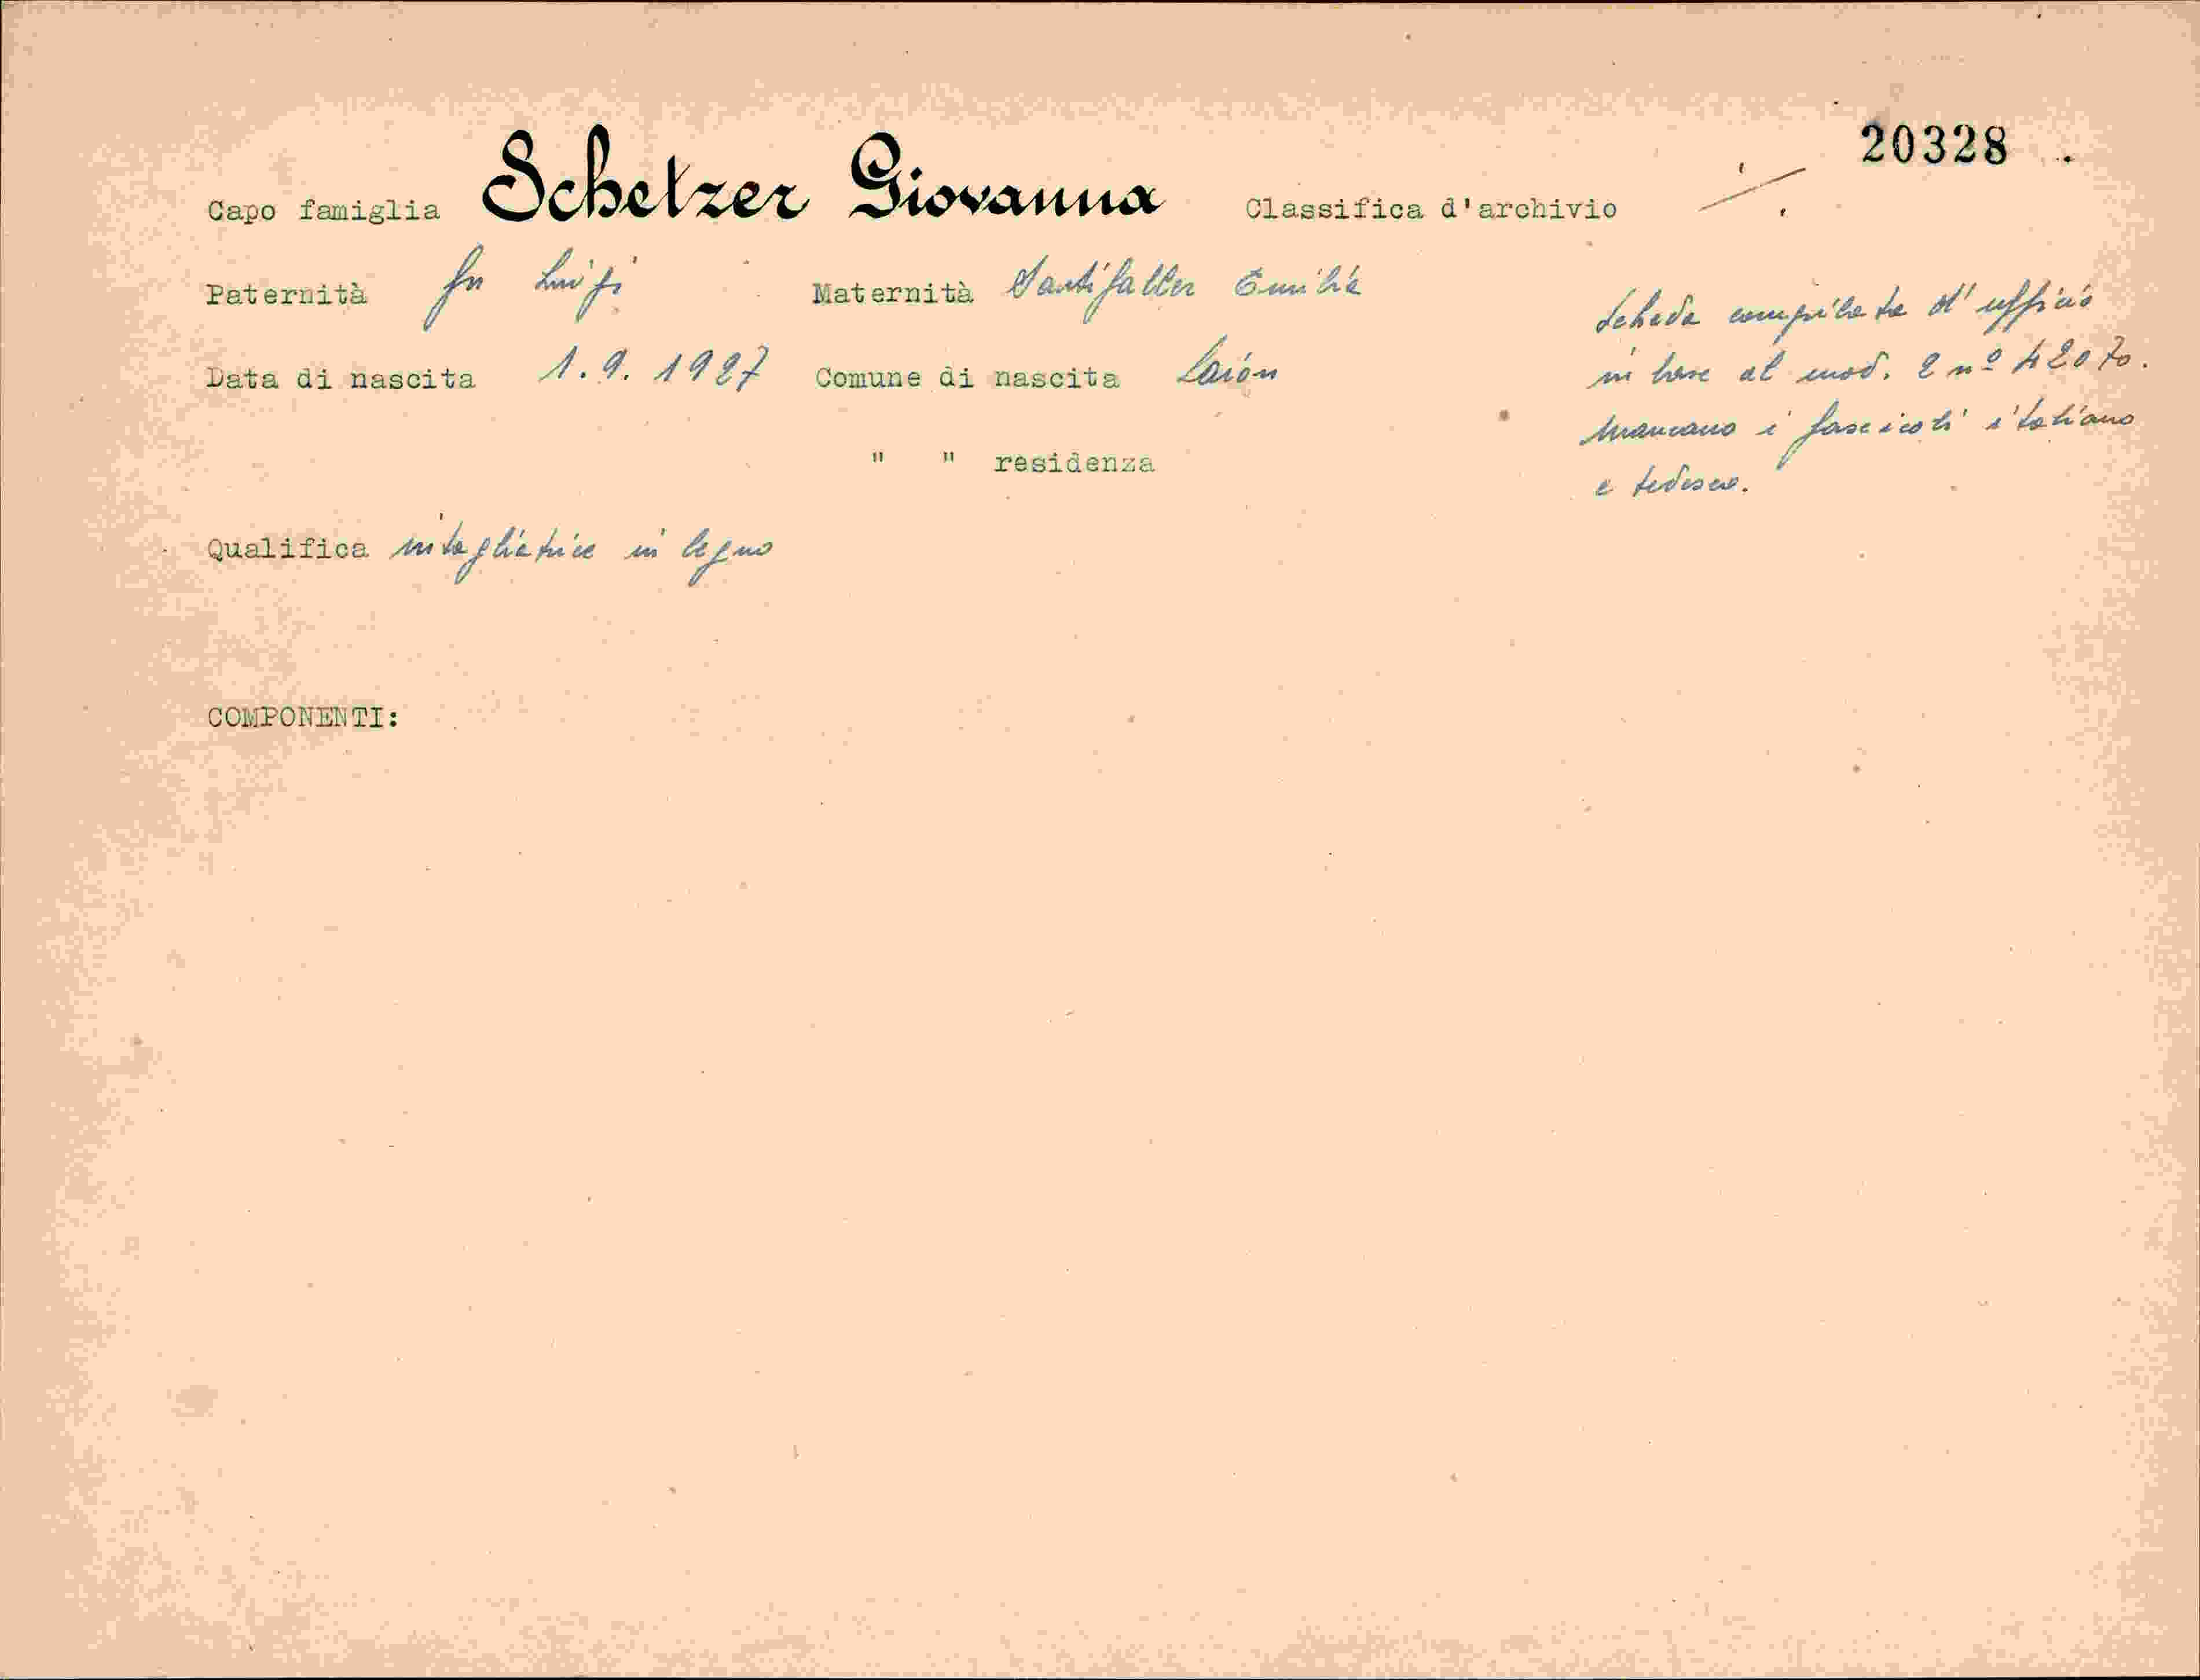 20328
Capo famiglia Schelzer Giovanna Classifica d'archivio ./.
Paternità fu Luigi Maternità Santifaller Emilia
Data di nascita 1.9.1927 Comune di nascita Laión
" " residenza
Qualifica intagliatrice in legno
COMPONENTI:
Scheda compilata d'ufficio
in base al mod. 2 nº 42070.
Mancano i fascicoli italiano
e tedesco.